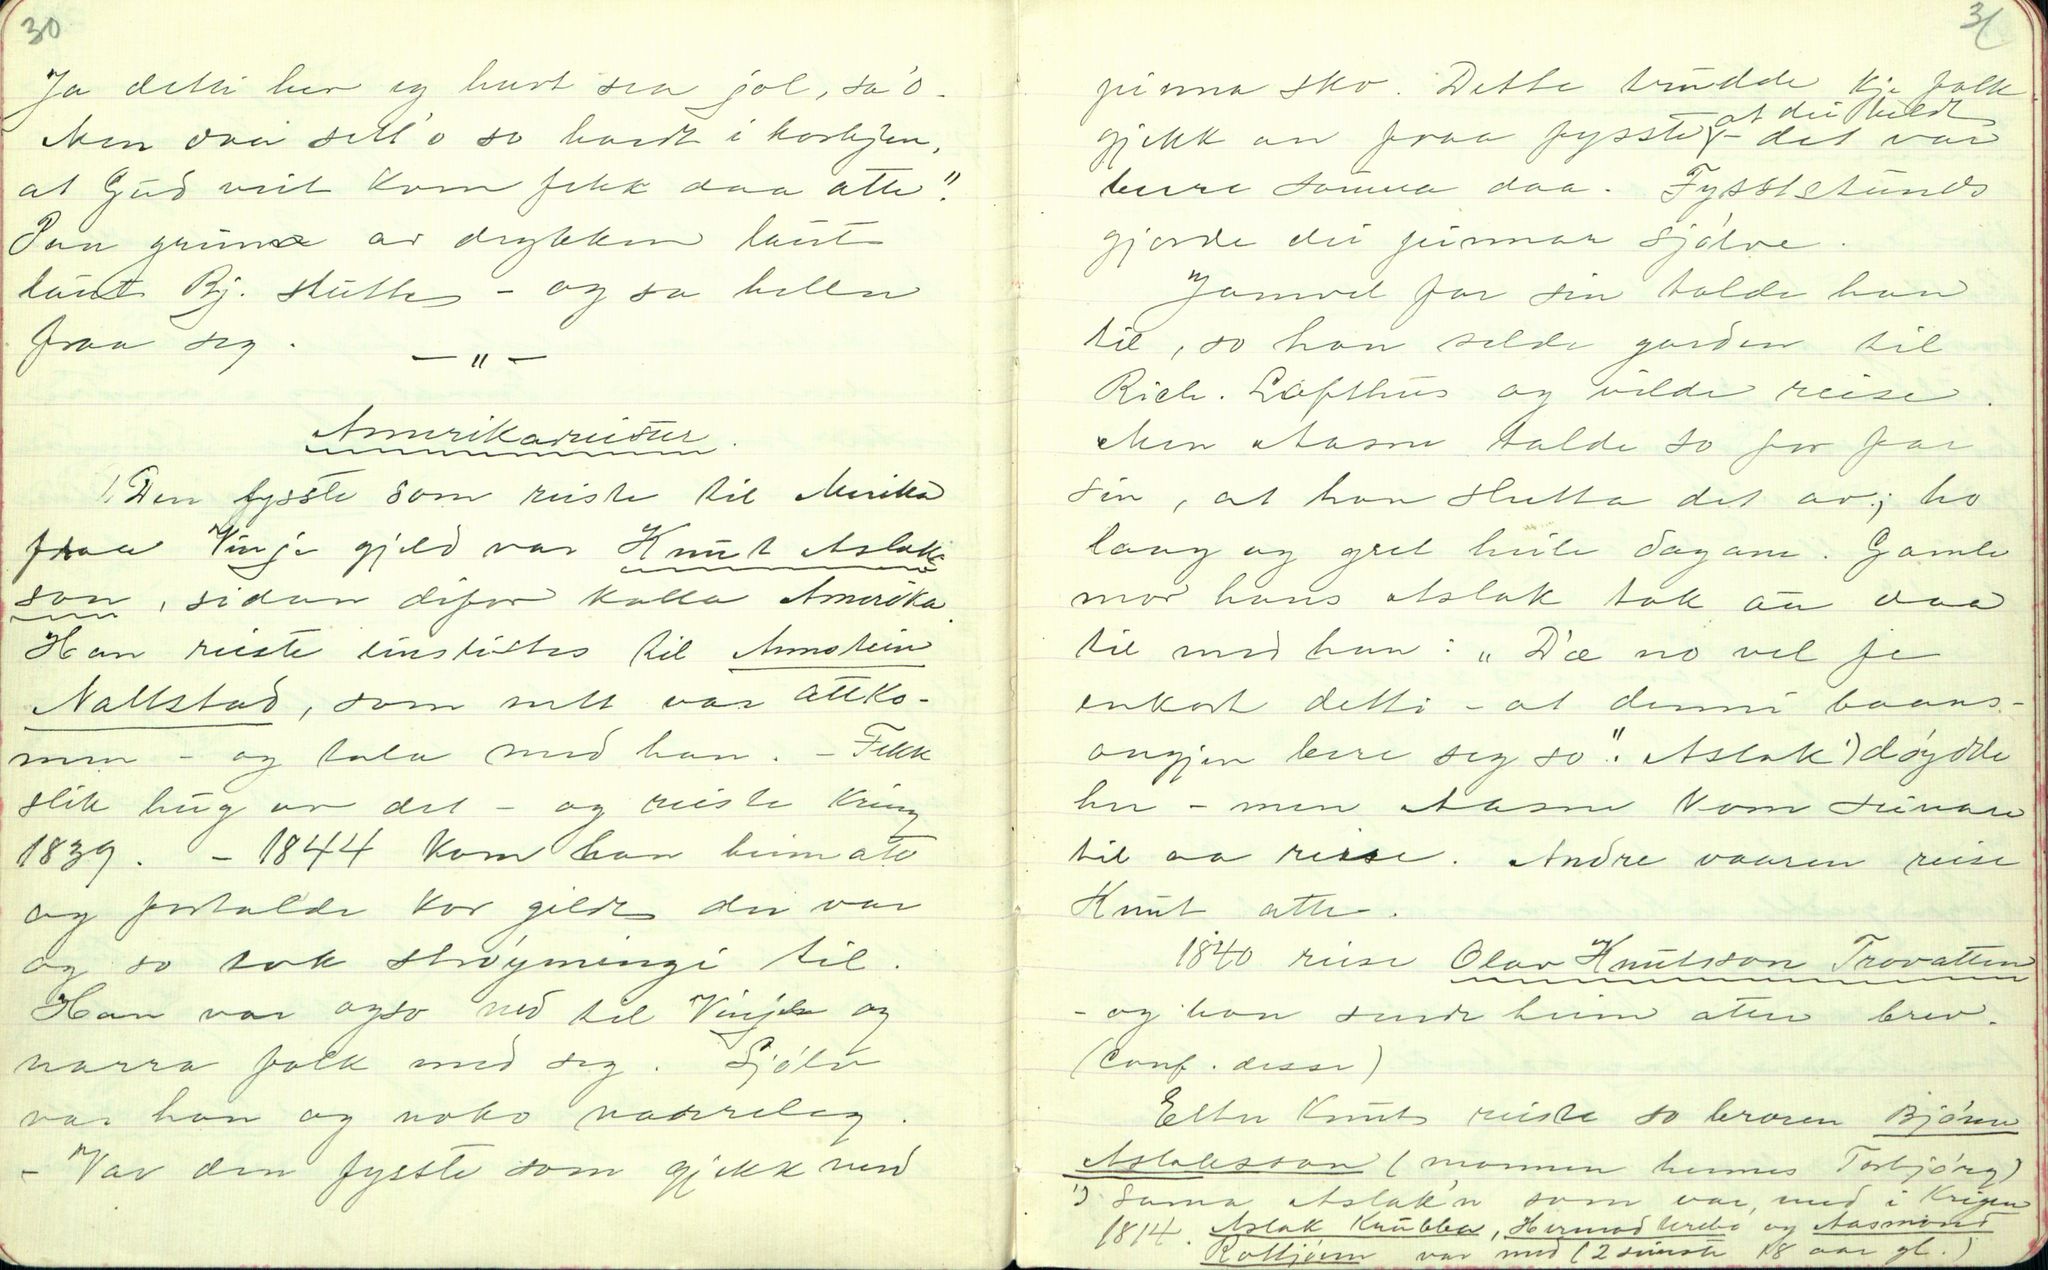 30
Ja detti hev eg havt sea jol, sa'o.
Men daa sett'o so hardt i korhjen,
at Gud veit kem fekk daa atte".
Paa grunn av drykken laut
laut Bj. slutte - og so helder
fraa seg.
— " —
Amerikareiser.
1. Den fysste som reiste til Merika
fraa Vinje gjeld var Knut Aslak-
son, sidan difor kalla Amerika.
Han reiste einstistes til Arnstein
Nattstad, som nett var attko-
men - og tala med han. - Fekk
slik hug av det - og reiste kring
1839. - 1844 kom han heim att
og fortalde kor gildt der var
og so tok strøymingi til.
Han var ogso ned til Vinje og
narra folk med seg. Sjølv
var han og noko narreleg.
- Var den fysste som gjekk med
31
pinna sko. Dette trudde kje folk
gjekk an fraa fysste, at dei heldt - det var
berre sauma daa. Fysstetunds
gjorde dei pinnar sjølve.
Jamvel far sin talde han
til, so han selde garden til
Rich. Lofthus og vilde reise.
Men Aasne talde so for far
sin, at han slutta det av; ho
laag og gret heile dagane. Gamle
mor hans Aslak tok au daa
til med han: "D'æ no vel je
enkort detti - at denni baans-
ongjen bere seg so". Aslak 1) døydde
her - men Aasne kom seinare
til aa reise. Andre vaaren reise
Knut atte.
1840 reise Olav Knutsson Trovatten
- og han sende heim atte brev.
(Conf. desse)
Etter Knut reiste so broren Bjønn
Aslaksson (mannen hennes Torbjørg)
1) Sama Aslak'n som var med i Krigen
1814. Aslak Knubba, Hermod Urebø og Aasmund
Rottjønn var med (2 sieste 18 aar gl.)